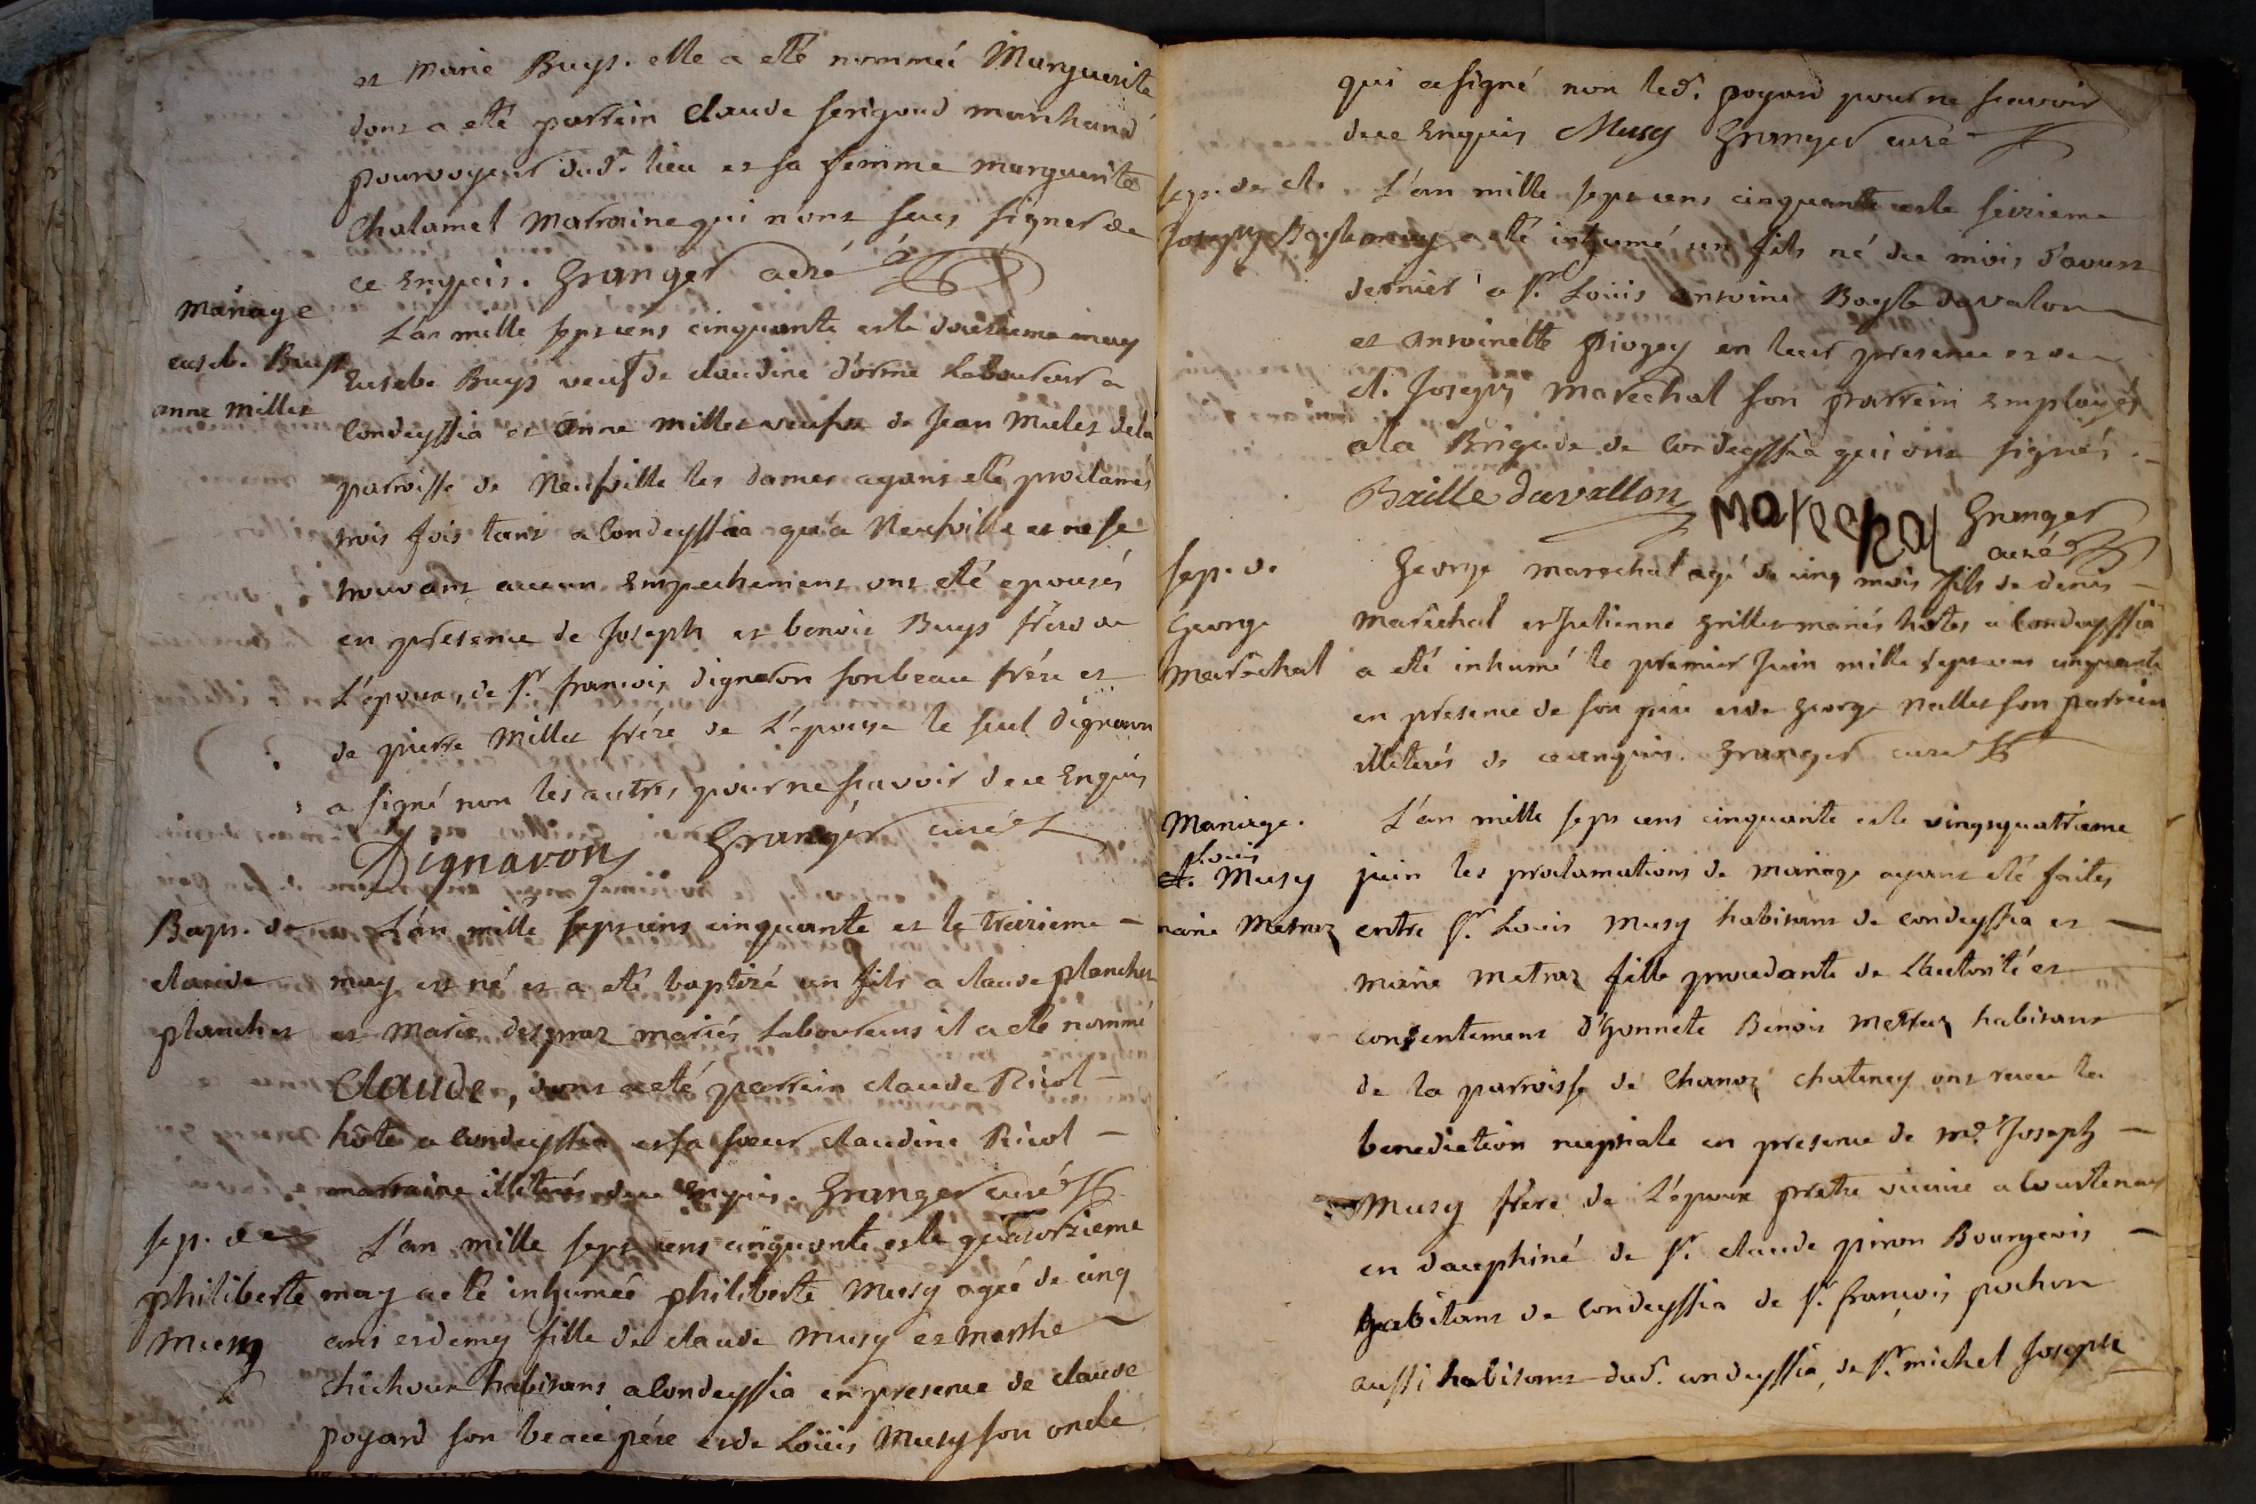 et Marie Buys. elle a eté nommeé Marguerite
dont a eté parrein Claude serigoud marchand
pourvoyeur dud. lieu et sa femme marguerite
Chalamel Marraine qui n'ont sceu signer de
ce Enquis. Granger curé
Mariage
eusebe Buys
anne millet
L'an mille sept cens cinquante et le douzieme may
Eusebe Buys veuf de claudine d'orme Laboureur a
Condeyssia et Anne millet veufve de Jean Mulet de la
parroisse de Neufville les dames ayans eté proclamés
trois fois tant a Condeyssia qu'a Neufville et ne se
trouvant aucun Empechement ont eté epousés
en presence de Joseph et benoit Buys freres de
L'epoux, de sr. francois dignavon son beau frére et
de pierre Millet frére de L'epouse le seul dignavon
a signé non les autres pour ne scavoir de ce Enquis
Dignavon Granger curé
Bapt. de
claude
planchet
L'an mille sept cens cinquante et le treizieme
may est né et a eté baptizé un fils a claude planchet
et Marie despraz mariés Laboureurs il a eté nommé
Claude, dont a eté parrein claude Ricol
hôte a Condeyssia et sa soeur claudine Ricol
marraine illiterés de ce enquis. Granger curé
sep. de
philiberte
Musy
L'an mille sept cens cinquante et le quatorzieme
may a eté inhumée philiberte Musy agée de cinq
ans et demy fille de claude Musy et Marthe
chichoux habitans a Condeyssia en presence de claude
poyard son beau pére et de Loüis Musy son oncle
qui a signé non led. poyard pour ne scavoir
de ce Enquis Musy Granger curé
sep. de cl.
Joseph Bayle
L'an mille sept cens cinquante et le seizieme
may a eté inhumé un fils né du mois d'aoust
dernier a sr. Loüis Antoine Bayle davalon
et Antoinette Giogey en leur presence et de
cl. Joseph Marechal son parrein Employés
a la Brigade de Condeyssia qui ont signés.
Baille davallon Marechal Granger
curé
sep. de
George
Maréchal
George marechal agé de cinq mois fils de denis
Maréchal et Julienne Grillet mariés hôtes a Condeyssia
a eté inhumé le premier Juin mille sept cens cinquante
en presence de son pére et de George Nallet son parrein
illiterés de ce enquis. Granger curé
Mariage.
Louis
Cl. Musy
marie Metraz
L'an mille sept cens cinquante et le vingt quatrieme
juin les proclamations de Mariage ayant eté faites
entre sr. Louis Musy habitant de condeyssia et
Marie Metraz fille procedante de L'autorité et
consentement d'honnete Benoit Metraz habitant
de la parroisse de Chanoz Chatenay ont receu la
benediction nuptiale en presence de me. Joseph
Musy frére de L'epoux pretre vicaire a Courtenay
en dauphiné de sr. claude piron Bourgeois
habitant de Condeyssia de sr. francois pochon
aussi habitant dud. condeyssia, de sr. michel Joseph